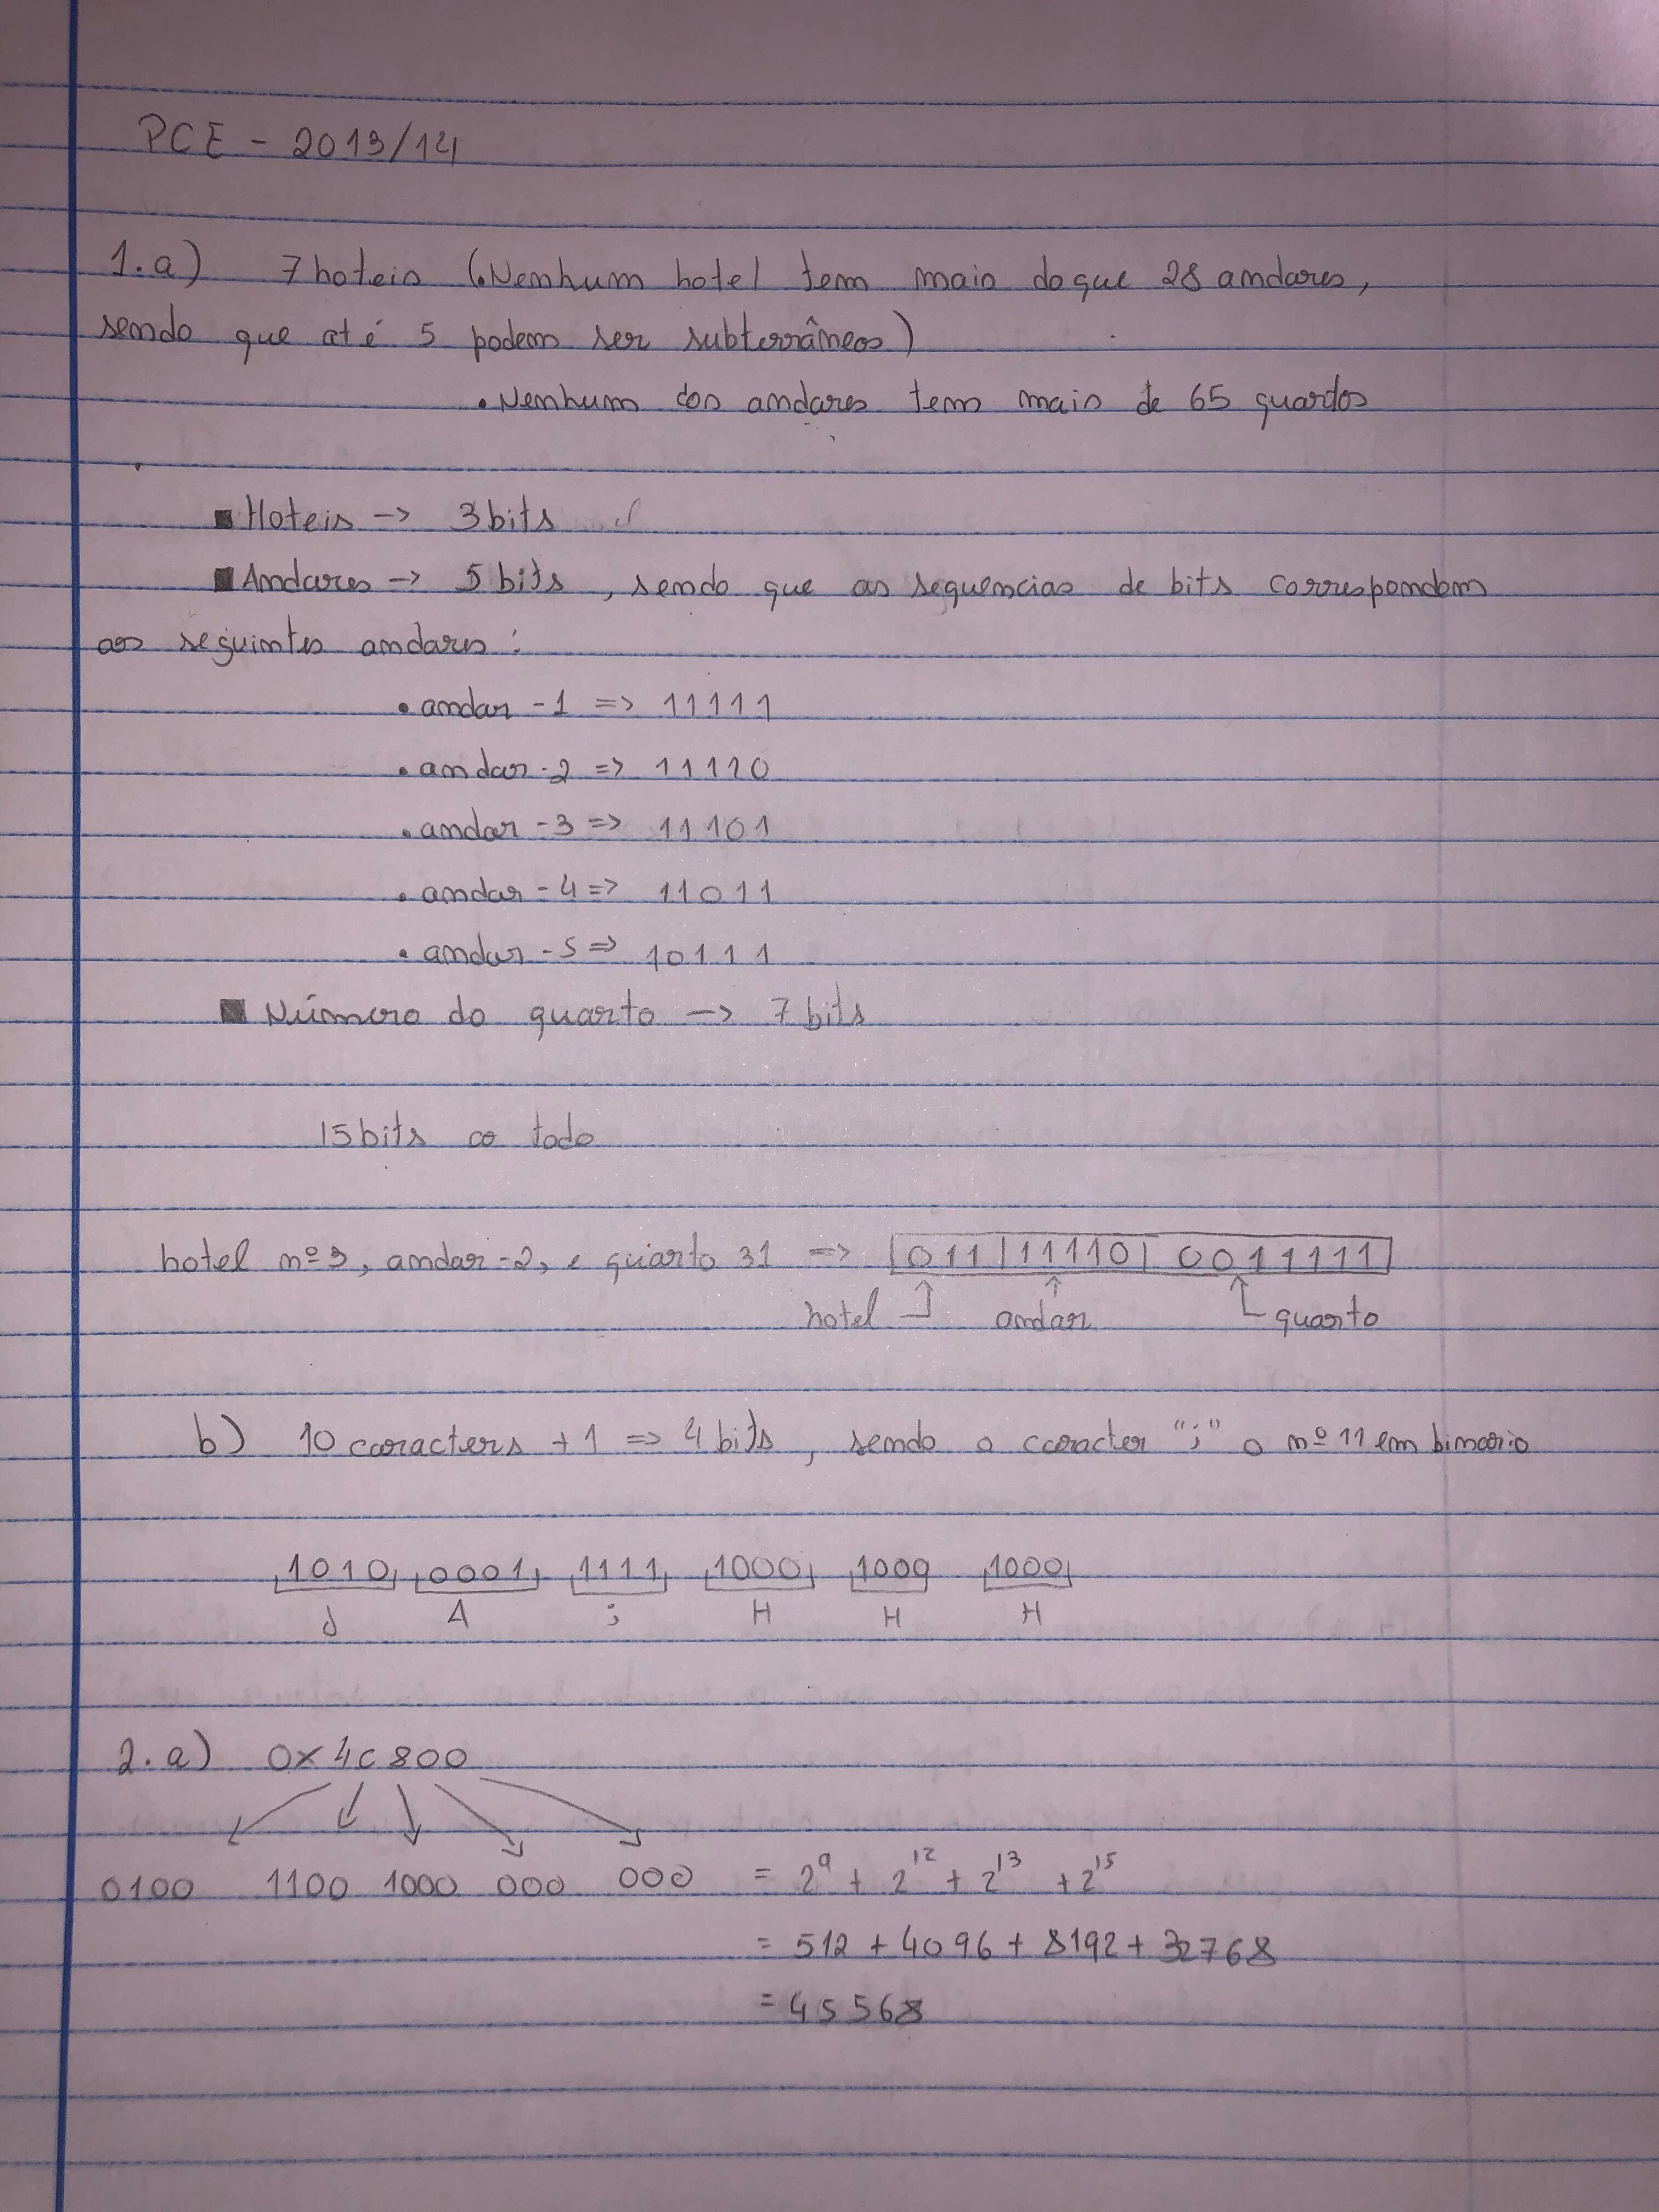 PCE - 2013/14
1.a) 7 hoteis (.Nenhum hotel tem mais do que 28 andares,
sendo que até 5 podem ser subterrâneos)
• Nenhum dos andares tem mais de 65 quartos
■ Hoteis -> 3 bits
■ Andares -> 5 bits , sendo que as sequencias de bits correspondem
aos seguintes andares :
• andar -1 => 11111
• andar -2 => 11110
• andar -3 => 11101
• andar -4 => 11011
• andar -5 => 10111
■ Número do quarto -> 7 bits
15 bits ao todo
hotel nº 3, andar -2, e quarto 31 => |011|11110|0011111|
hotel andar quarto
b) 10 caracters + 1 => 4 bits , sendo o caracter ";" o nº 11 em binario
1010 0001 1111 1000 1000 1000
J A ; H H H
2.a) 0x4C800
0100 1100 1000 000 000 = 2^9 + 2^12 + 2^13 + 2^15
= 512 + 4096 + 8192 + 32768
= 45568